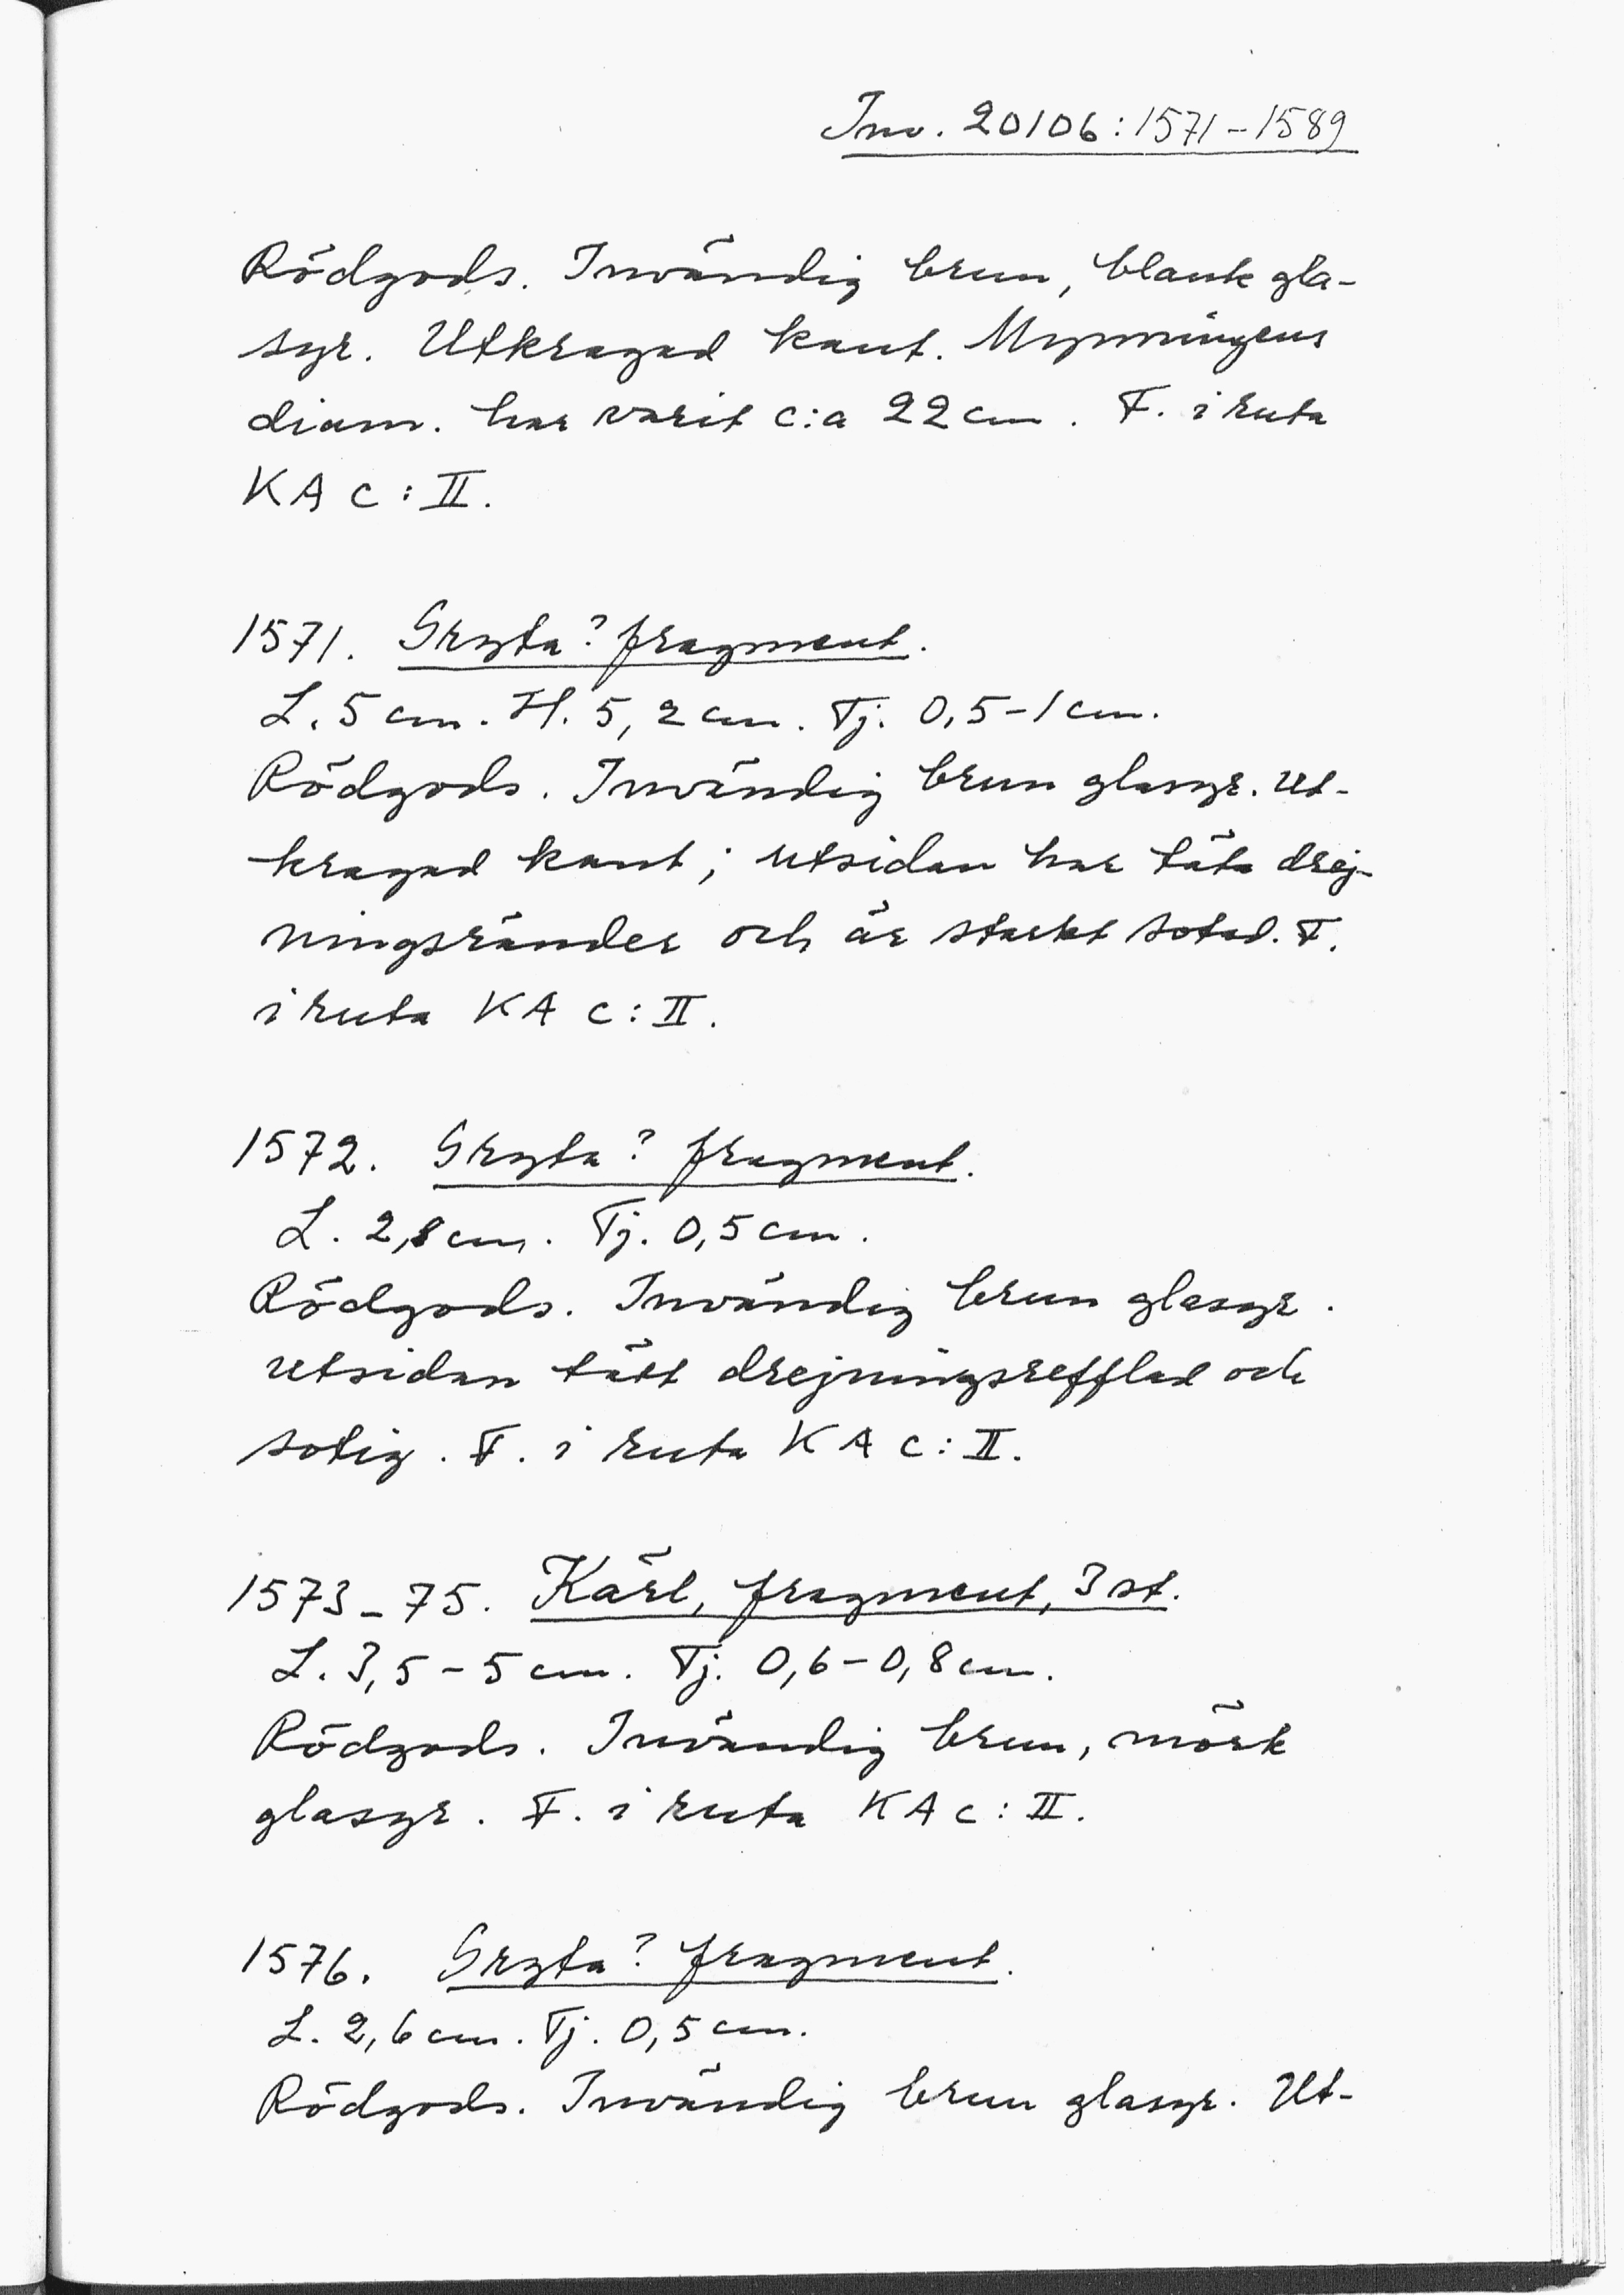 Inv. 20106:1571-1589
Rödgods. Invändig brun, blank gla-
syr. Utkragad kant. Mynningens
diam. har varit c:a 22 cm. F. i ruta
KA C:II.
1571. Gryta? fragment.
L. 5 cm. H. 5,2 cm. Tj. 0,5-1 cm.
Rödgods. Invändig brun glasyr. Ut-
kragad kant; utsidan har täta drej-
ningsränder och är starkt sotad. F.
i ruta KA C:II.
1572. Gryta? fragment.
L. 2,8 cm. Tj. 0,5 cm.
Rödgods. Invändig brun glasyr.
Utsidan tätt drejningsrefflad och
sotig. F. i ruta KA C:II.
1573-75. Kärl, fragment, 3 st.
L. 3,5-5 cm. Tj. 0,6-0,8 cm.
Rödgods. Invändig brun, mörk
glasyr. F. i ruta KA C:II.
1576. Gryta? fragment.
L. 2,6 cm. Tj. 0,5 cm.
Rödgods. Invändig brun glasyr. Ut-